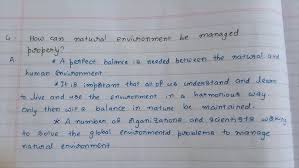 4. How can natural environment be managed
properly?
A. * A perfect balance is needed between the natural and
human environment
* It is important that all of us understand and learn
to live and use the environment in a harmonious way.
Only then will a balance in nature be maintained.
* A number of organizations and scientists working
to solve the global environmental problems to manage
natural environment